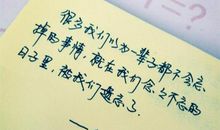 很多我们以为一辈子都不会忘
掉的事情,就在我们念念不忘的
日子里,被我们遗忘了.